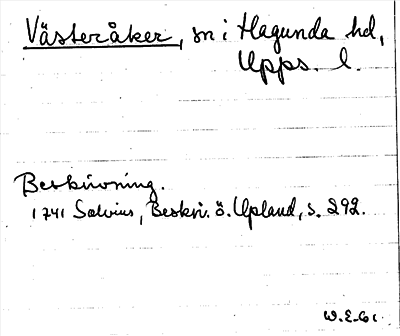 Västeråker, sn i Hagunda hd,
Upps. l.
Beskrivning.
1741 Salvius, Beskr. ö. Upland, s. 292.
W.E-61